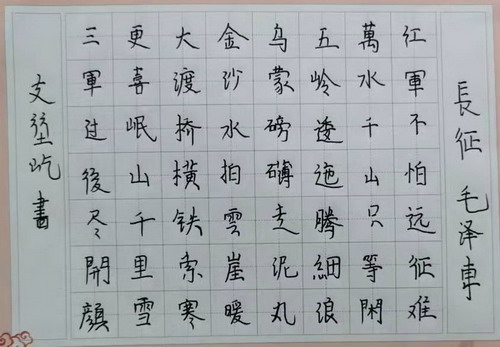 長征 毛泽東
红軍不怕远征难
萬水千山只等閑
五岭逶迤腾細浪
乌蒙磅礴走泥丸
金沙水拍雲崖暖
大渡桥横铁索寒
更喜岷山千里雪
三軍过後尽開顔
支屹書